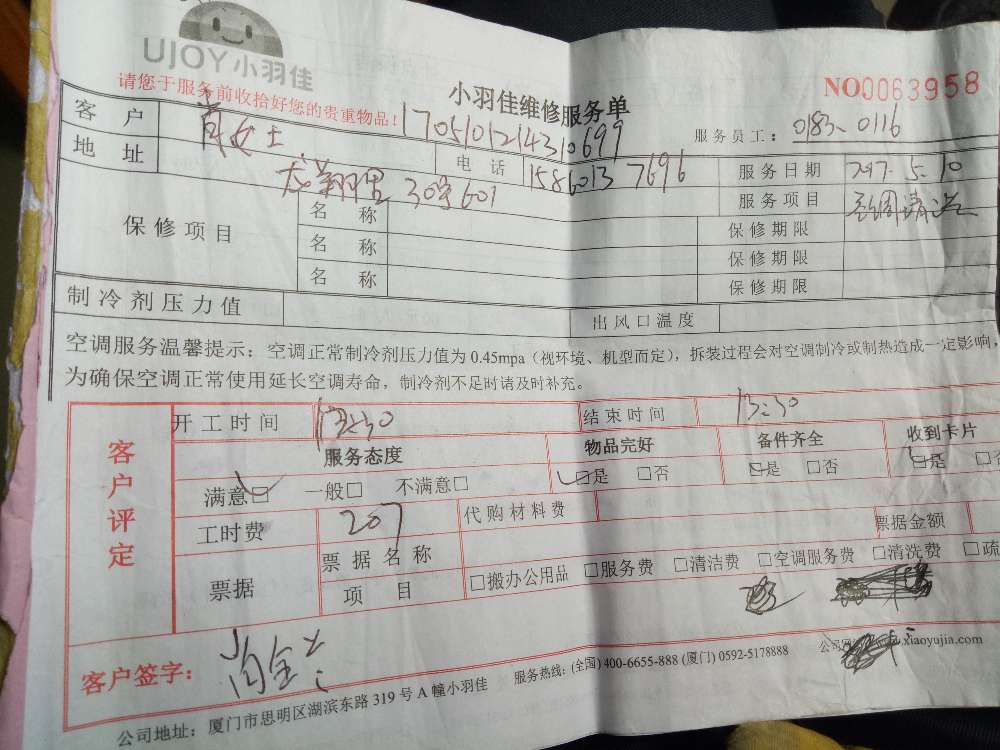 UJOY小羽佳
请您于服务前收拾好您的贵重物品！
小羽佳维修服务单
NO0063958
1705101214310699
服务员工：0183-0116
客户 肖女士 电话 158 6013 7696 服务日期 2017.5.10
地址 龙翔里30号601 服务项目 空调清洗
保修项目 名称 保修期限
名称 保修期限
名称 保修期限
制冷剂压力值 出风口温度
空调服务温馨提示：空调正常制冷剂压力值为0.45mpa（视环境、机型而定），拆装过程会对空调制冷或制热造成一定影响，
为确保空调正常使用延长空调寿命，制冷剂不足时请及时补充。
客户评定
开工时间 结束时间
服务态度 物品完好 备件齐全 收到卡片
满意☑ 一般□ 不满意□ ☑是 □否 ☑是 □否 ☑是 □否
工时费 207 代购材料费
票据 票据名称 票据金额
项目 □搬办公用品 □服务费 □清洁费 □空调服务费 □清洗费 □疏
客户签字：
公司地址：厦门市思明区湖滨东路319号A幢小羽佳 服务热线：(全国) 400-6655-888 (厦门) 0592-5178888 xiaoyujia.com